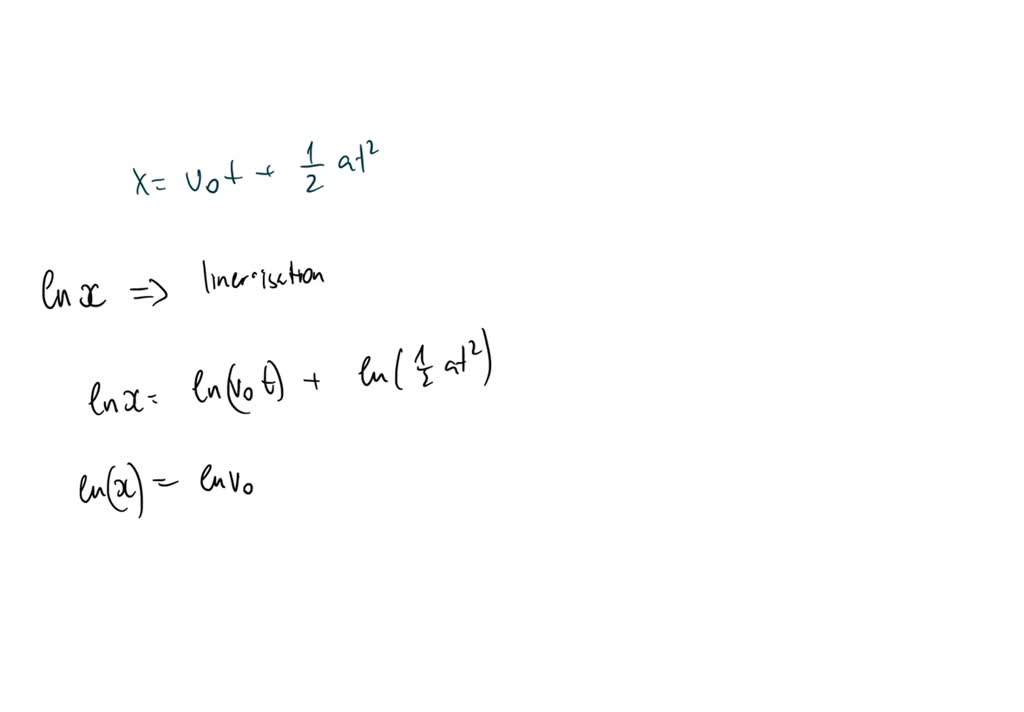 x = v₀t + 1/2 at²
ln x ⇒ linerisation
ln x = ln(v₀ t) + ln(1/2 at²)
ln(x) = ln v₀